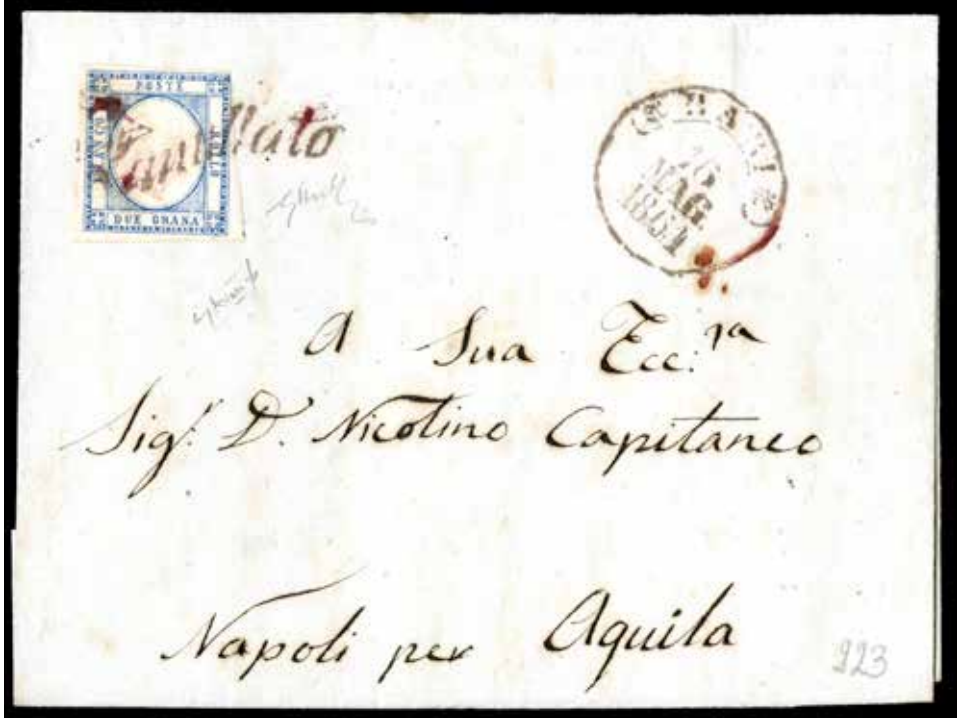 POSTE
FRANCO
BOLLO
DUE GRANA
Annullato
BARI
16
MAG
1861
A Sua Ecc:za
Sigr. D. Nicolino Capitaneo
Napoli per Aquila
923